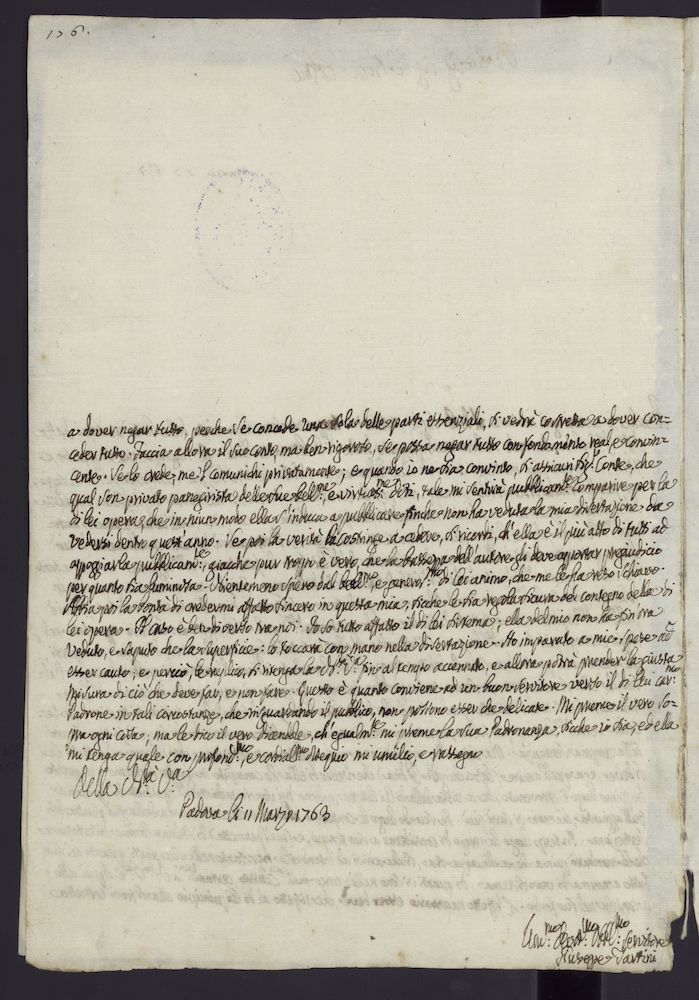 126.
a dover negar tutto, perche se concede una sola delle parti essenziali, si vedrà costretta a dover con=
ceder tutto. Faccia allora il suo conto, ma ben rigoroso, se possa negar tutto con fondamento real, e convin=
cente. Se lo crede, me 'l comunichi privatamente; e quando io ne sia convinto, si assicuri Sig.r Conte, che
qual son privato panegirista delle sue bell.me, e virtuos.me Doti, tale mi sentirà pubblicam.te comparire per la
di lei opera, che in niun modo ella s'induca a pubblicare finche non ha veduta la mia disertazione da
vedersi dentro quest'anno. Se poi la verità la costringe a cedere, si ricordi, ch'ella è il più atto di tutti ad
appoggiarla pubblicam.te, giacche pur troppo è vero, che la bassezza dell'autore gli deve apportar pregiudicio
per quanto sia luminosa. Nientemeno spero dal bell.mo, e generos.mo di lei animo, che me le fa reso schiavo.
Abbia poi la bontà di credermi affatto sincero in questa mia, sicche le sia regola sicura del contegno della di
lei opera. Il caso è ben diverso tra noi. Io so tutto affatto il di lei sistema; ella del mio non ha fin'ora
veduto, e saputo che la superficie: lo toccarà con mano nella disertazione. Ho imparato a mie spese ad
esser cauto, e perciò, le replico, si ritenga la fin al tempo accennato, e allora potrà prender la giusta
misura di ciò che deve far, e non fare. Questo è quanto conviene ad un buon servitore verso il di lui car.mo
Padrone in tali circostanze, che in guardando il pubblico, non possono esser che delicate. Mi preme il vero so=
pra ogni cosa; ma le dico il vero dicendole, ch'egualm.te mi preme la sua Padronanza, sicche io sia, ed ella
mi tenga quale con profond.mo, e cordial.mo ossequio mi umilio, e rassegno
Della
Padova li 11 Marzo 1763
Um.mo Devot.mo Obbl.mo Servitore
Giuseppe Tartini